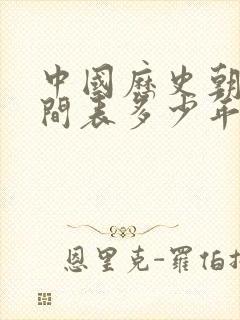 中國歷史朝
間表多少年
恩里克-羅伯托